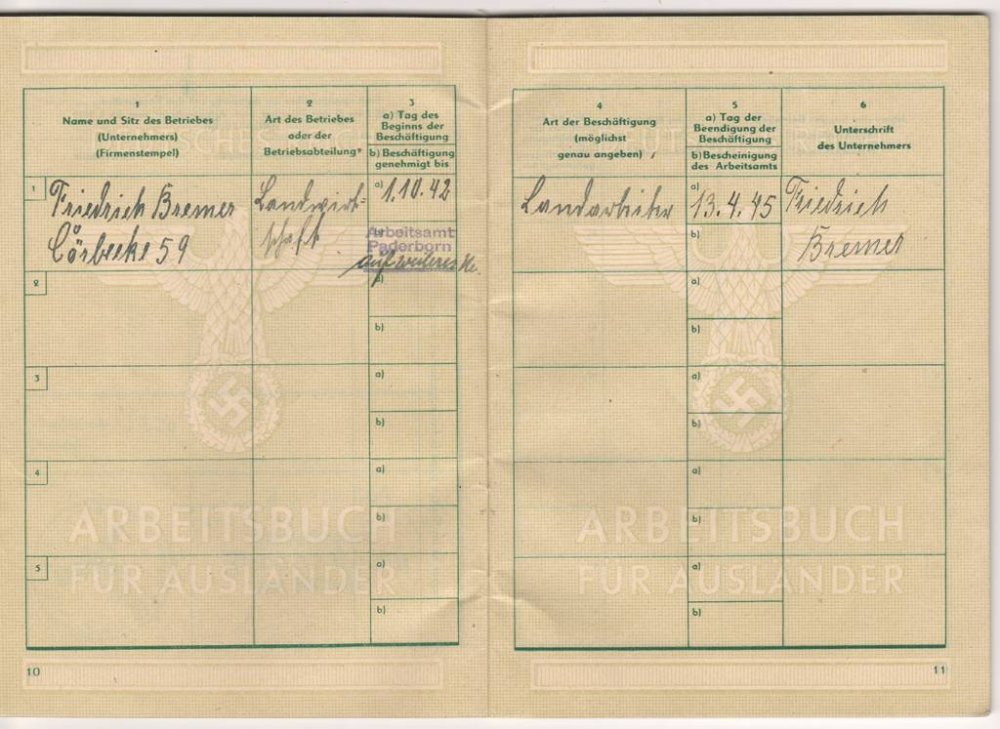 1
Name und Sitz des Betriebes
(Unternehmers)
(Firmenstempel)
2
Art des Betriebes
oder der
Betriebsabteilung*
3
a) Tag des
Beginns der
Beschäftigung
b) Beschäftigung
genehmigt bis
4
Art der Beschäftigung
(möglichst
genau angeben)
5
a) Tag der
Beendigung der
Beschäftigung
b) Bescheinigung
des Arbeitsamts
6
Unterschrift
des Unternehmers
1
Friedrich Bremer
Cörbecke 59
Landwirt=
schaft
a) 1.10.42
Arbeitsamt
Paderborn
auf weiteres
Landarbeiter
a)
13.4.45
b)
Friedrich
Bremer
2
a)
b)
a)
b)
3
a)
b)
a)
b)
4
a)
b)
a)
b)
5
a)
b)
a)
b)
ARBEITSBUCH
FÜR AUSLÄNDER
ARBEITSBUCH
FÜR AUSLÄNDER
10
11